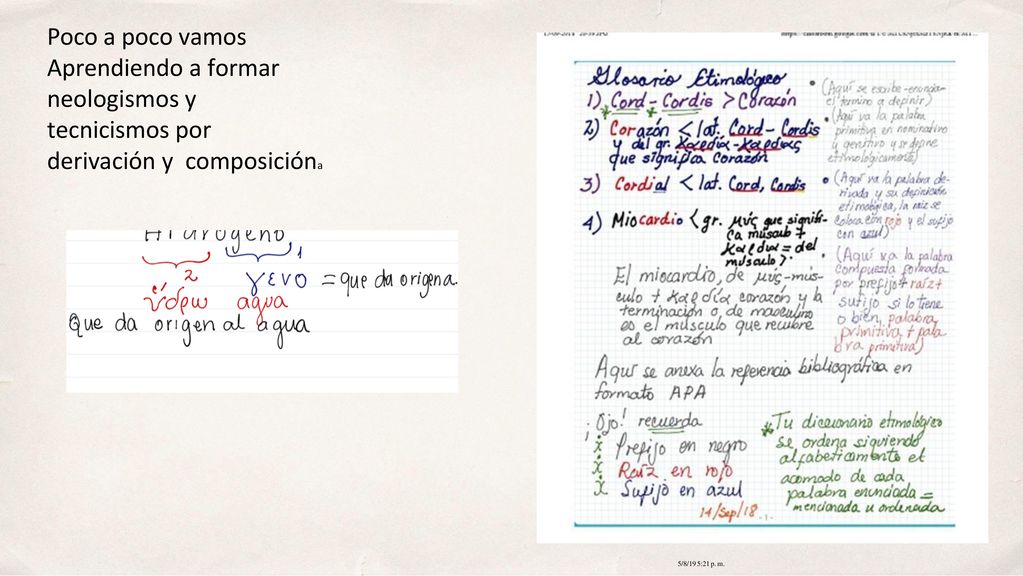 Poco a poco vamos
Aprendiendo a formar
neologismos y
tecnicismos por
derivación y composicióna
Hidrógeno
2 1
γενο = que da origena
ύδρω agua
Que da origen al agua
Glosario Etimológico
1) Cord - Cordis > Corazón
2) Corazón < lat. Cord - Cordis
y del gr. καρδία - καρδίας
que significa corazón
3) Cordial < lat. Cord, Cordis
4) Miocardio < gr. μύς que signifi-
ca músculo +
καρδια = del
músculo >.
El miocardio, de μύς - mús-
culo + καρδία corazón y la
terminación o, de masculino
es el músculo que recubre
al corazón
• (Aquí se escribe - enuncia-
el término a definir)
• (Aquí va la palabra
primitiva en nominativo
y genitivo y se define
etimológicamente)
• (Aquí va la palabra de-
rivada y su definición
etimológica, la raíz se
colorea con rojo y el sufijo
con azul)
(Aquí va la palabra
compuesta formada
por prefijo + raíz +
sufijo si lo tiene
o bien, palabra
primitiva + pala
bra primitiva)
Aquí se anexa la referencia bibliográfica en
formato APA
¡Ojo! recuerda
Prefijo en negro
Raíz en rojo
Sufijo en azul
14/Sep/18
Tu diccionario etimológico
se ordena siguiendo
alfabéticamente el
acomodo de cada
palabra enunciada =
mencionada u ordenada
5/8/19 5:21 p. m.